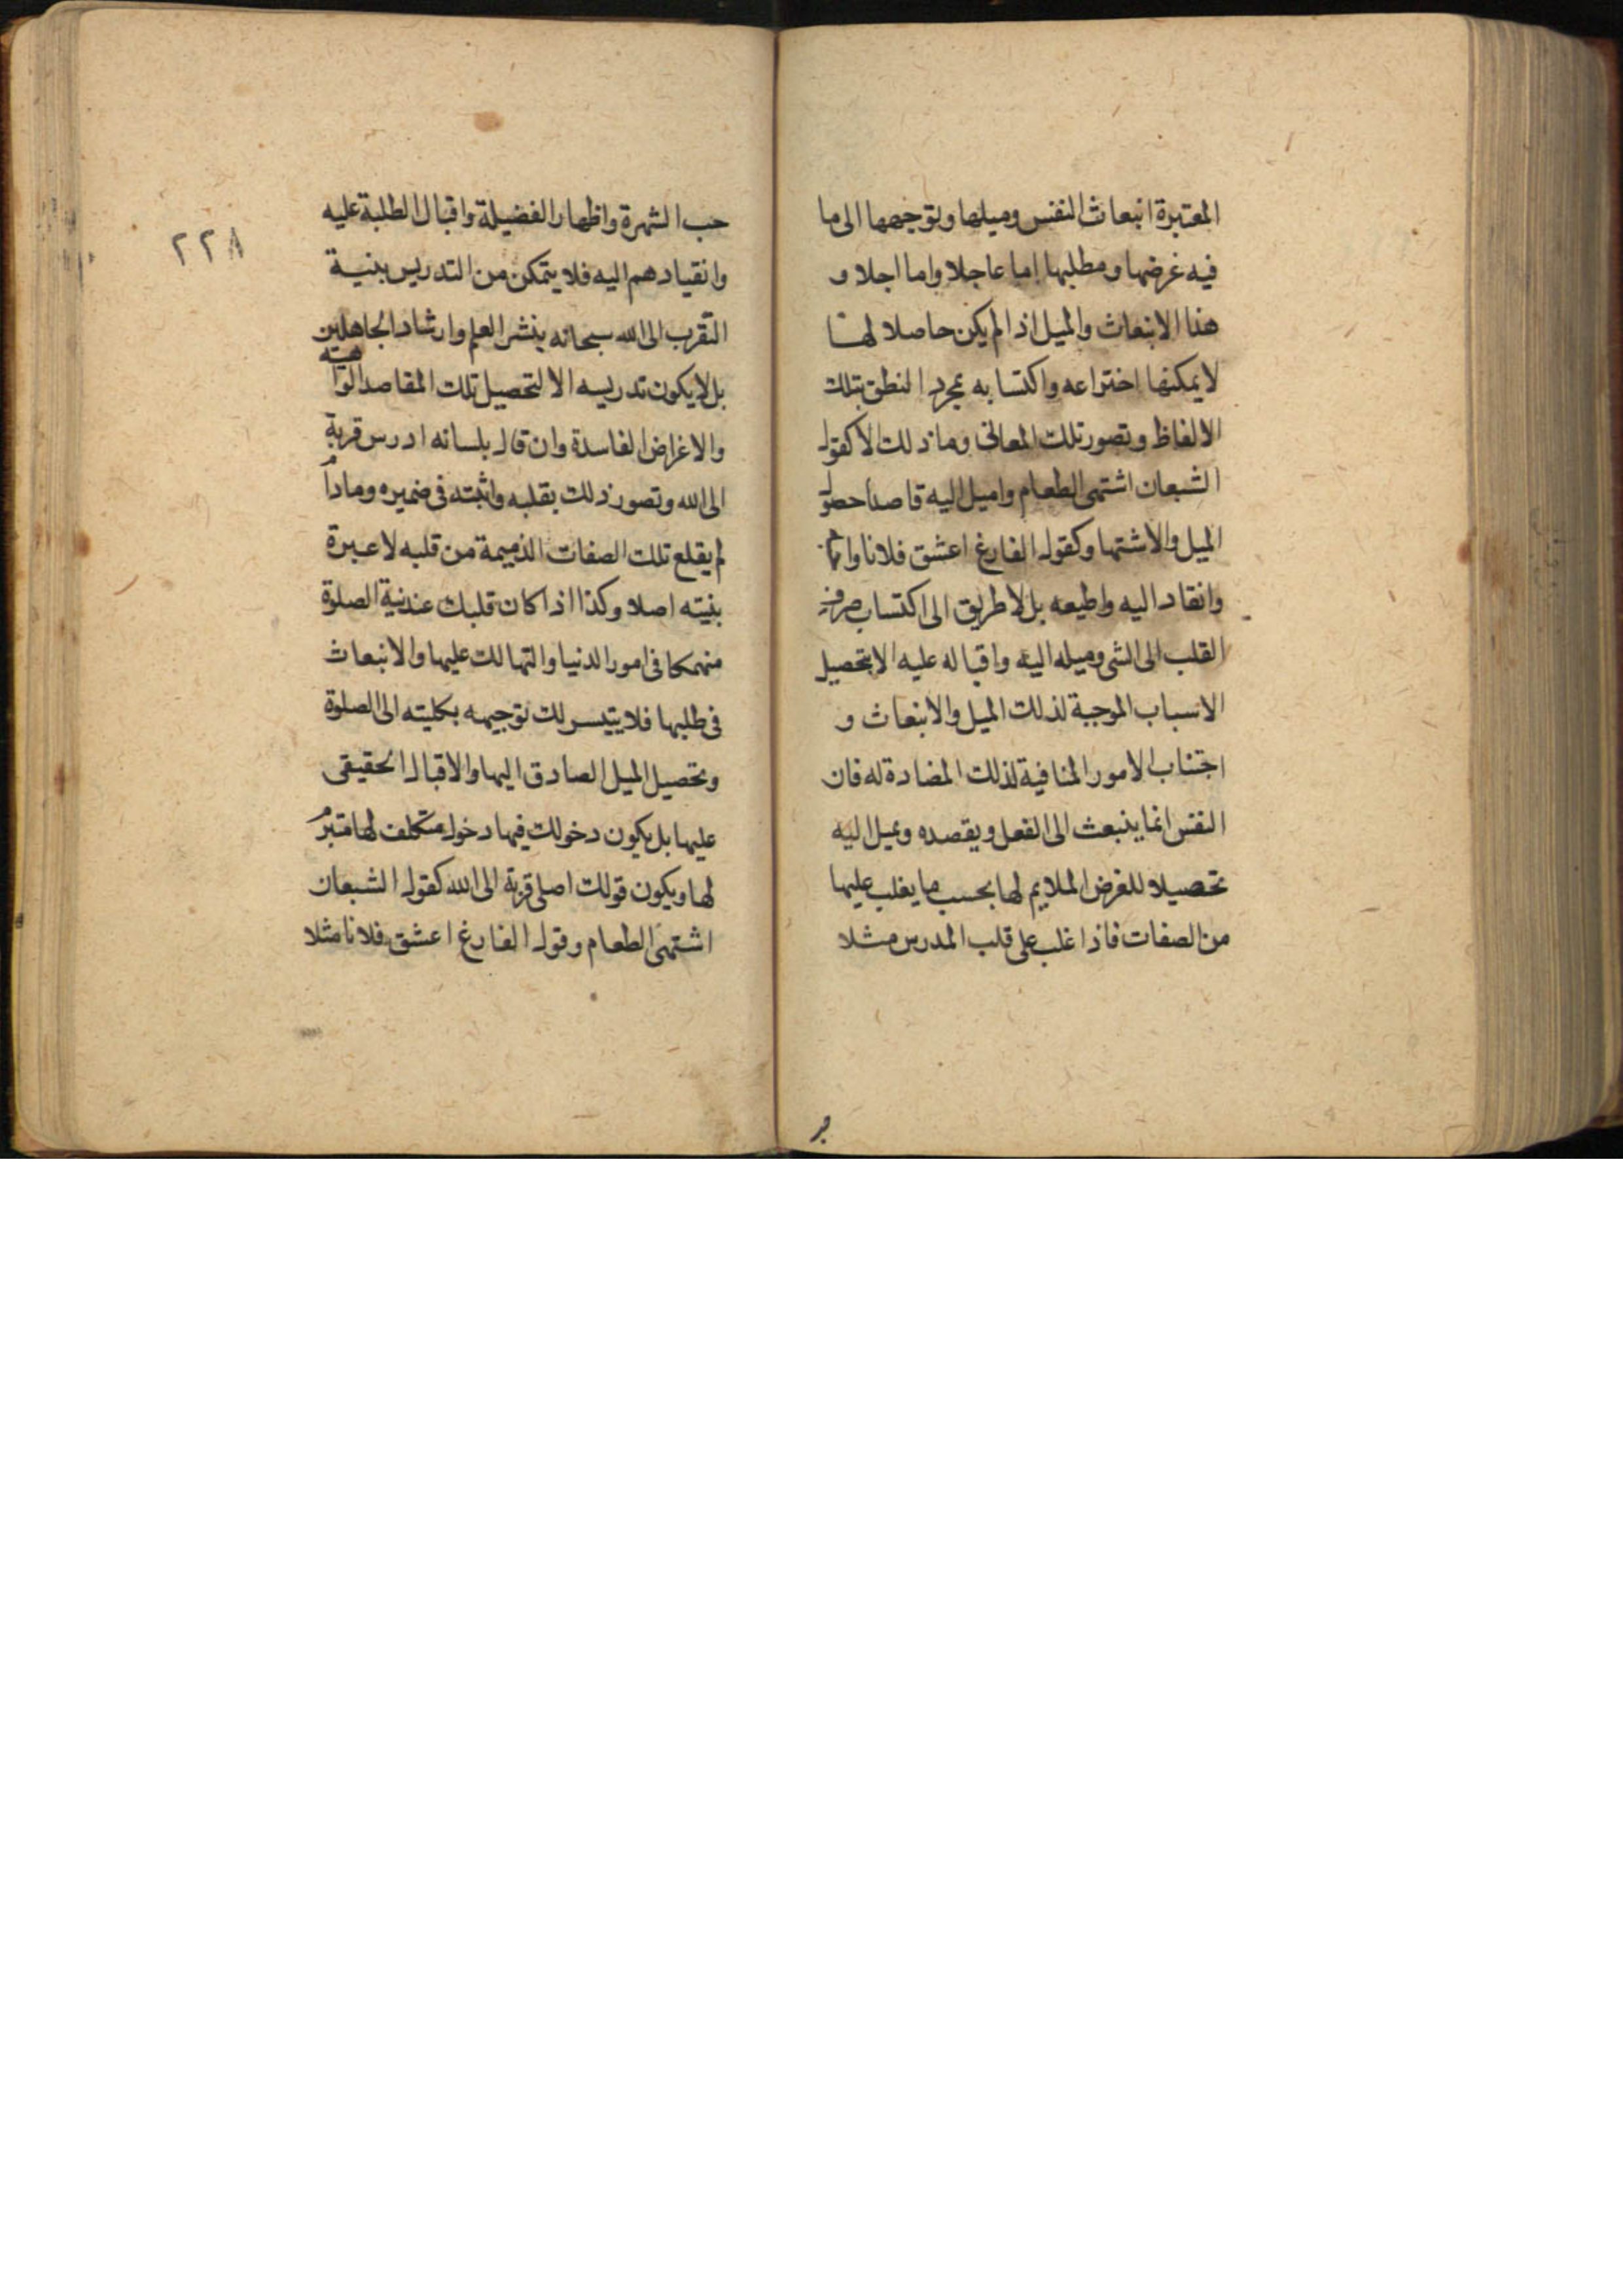 المعتبرة انبعاث النفس وميلها وتوجهها الى ما
فيه غرضها ومطلبها اما عاجلا واما اجلا و
هذا الانبعاث والميل اذا لم يكن حاصلا لها
لا يمكنها اختراعه واكتسابه بمجرد النطق بتلك
الالفاظ وتصور تلك المعانى وما ذلك الا كقول
الشبعان اشتهى الطعام واميل اليه قاصدا حصول
الميل والاشتها وكقول الفارغ اعشق فلانا
وانقاد اليه واطيعه بل لا طريق الى اكتساب صرف
القلب الى الشى وميله اليه واقباله عليه الا بتحصيل
الاسباب الموجبة لذلك الميل والانبعاث و
اجتناب الامور المنافية لذلك المضادة له فان
النفس انما ينبعث الى الفعل ويقصده ويميل اليه
تحصيلا للغرض الملايم لها بحسب ما يغلب عليها
من الصفات فاذا غلب على قلب المدرس مثلا
٢٢٨
حب الشهرة واظهار الفضيلة واقبال الطلبة عليه
وانقيادهم اليه فلا يتمكن من التدريس بنية
التقرب الى الله سبحانه بنشر العلم وارشاد الجاهلين
بل لا يكون تدريسه الا لتحصيل تلك المقاصد الواهية
والاغراض الفاسدة وان قال بلسانه ادرس قربة
الى الله وتصور ذلك بقلبه واثبته فى ضميره ومادام
لم يقلع تلك الصفات الذميمة من قلبه لا عبرة
بنيته اصلا وكذا اذا كان قلبك عند نية الصلوة
منهمكا فى امور الدنيا والتهالك عليها والانبعاث
فى طلبها فلا يتيسر لك توجيهه بكليته الى الصلوة
وتحصيل الميل الصادق اليها والاقبال الحقيقى
عليها بل يكون دخولك فيها دخول متكلف لها متبرم
لها ويكون قولك اصلى قربة الى الله كقول الشبعان
اشتهى الطعام وقول الفارغ اعشق فلانا مثلا